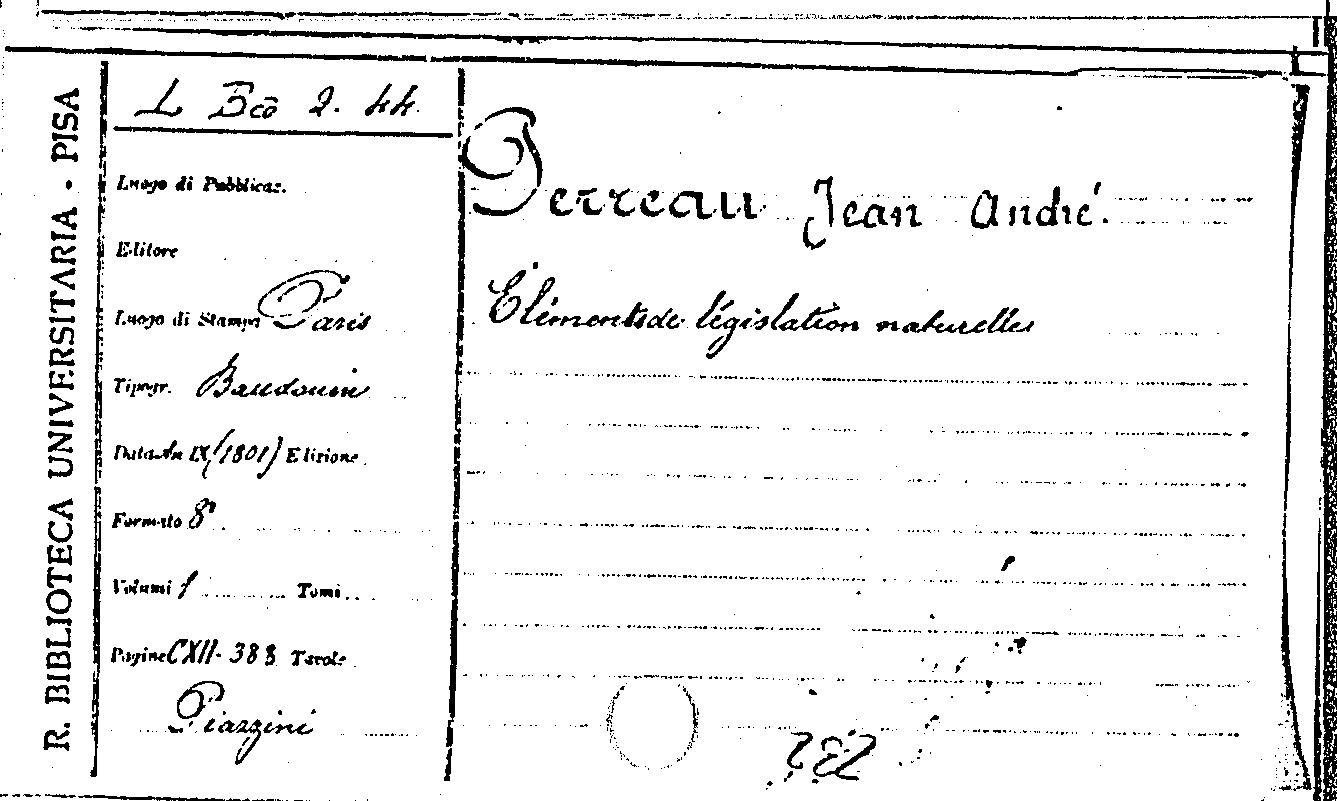 R. BIBLIOTECA UNIVERSITARIA · PISA
L Bco 2. 44
Luogo di Pubblicaz.
Editore
Luogo di Stampa Paris
Tipogr. Baudouin
Data An IX (1801) Edizione
Formato 8°
Volumi 1 Tomi
Pagine CXII-388 Tavole
Piazzini
Perreau Jean André.
Éléments de législation naturelles